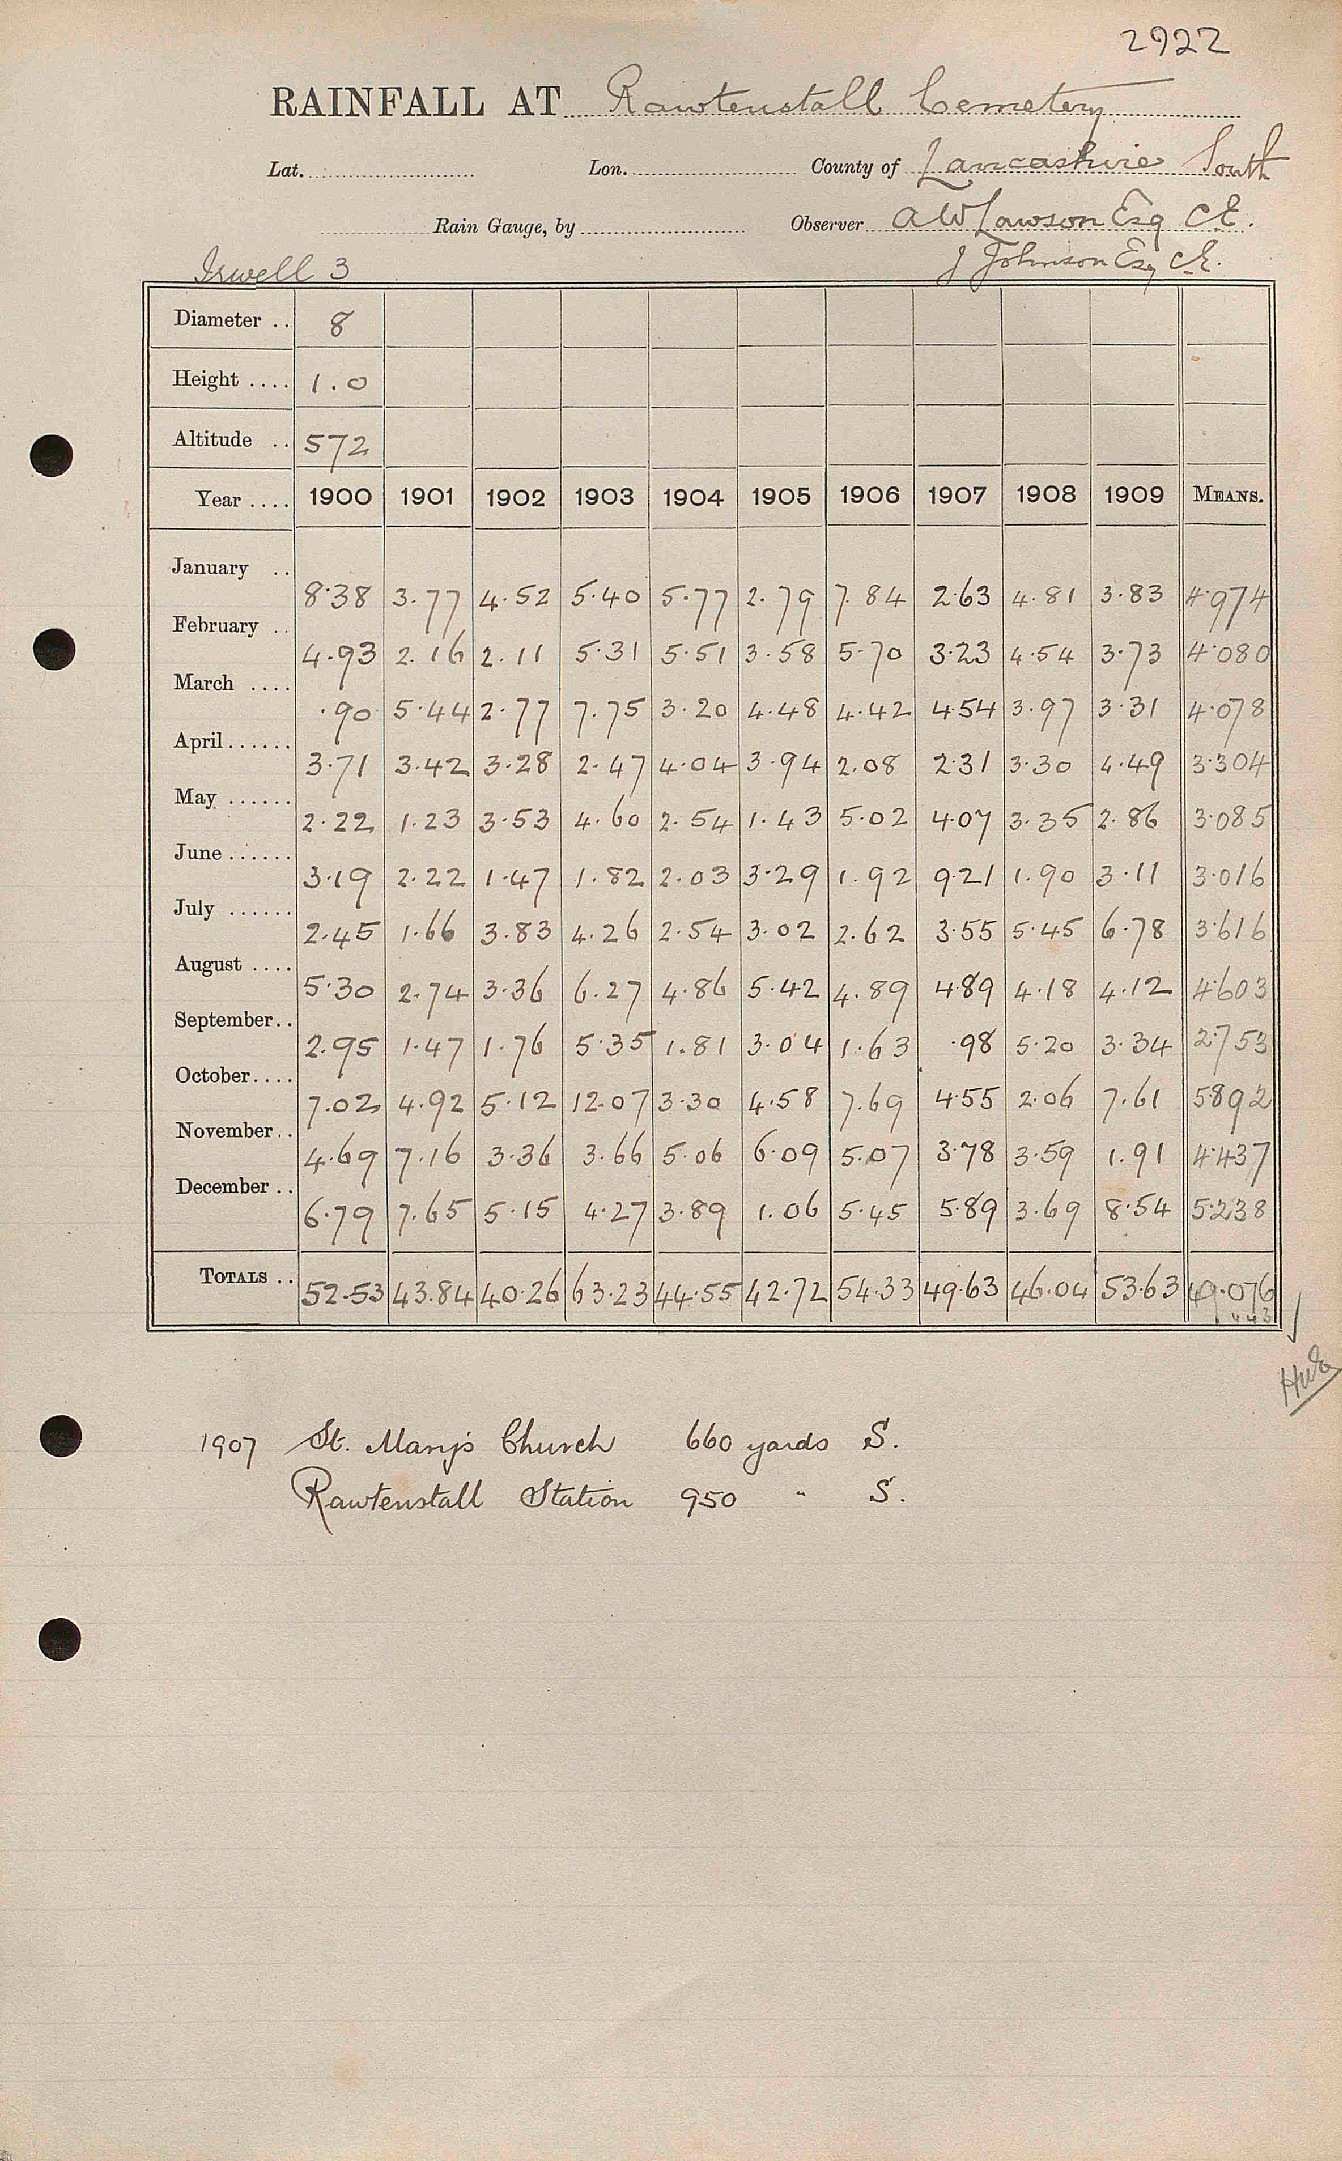 2922
RAINFALL AT Rawtenstall Cemetery
Lat. Lon. County of Lancashire South
Rain Gauge, by Observer A W Lawson Esq C.E.
Irwell 3 J Johnson Esq C.E.
Diameter .. 8
Height .... 1.0
Altitude .. 572
Year .... 1900 1901 1902 1903 1904 1905 1906 1907 1908 1909 MEANS.
January .. 8.38 3.77 4.52 5.40 5.77 2.79 7.84 2.63 4.81 3.83 4.974
February .. 4.93 2.16 2.11 5.31 5.51 3.58 5.70 3.23 4.54 3.73 4.080
March .... .90 5.44 2.77 7.75 3.20 4.48 4.42 4.54 3.97 3.31 4.078
April ...... 3.71 3.42 3.28 2.47 4.04 3.94 2.08 2.31 3.30 4.49 3.304
May ...... 2.22 1.23 3.53 4.60 2.54 1.43 5.02 4.07 3.35 2.86 3.085
June ...... 3.19 2.22 1.47 1.82 2.03 3.29 1.92 9.21 1.90 3.11 3.016
July ...... 2.45 1.66 3.83 4.26 2.54 3.02 2.62 3.55 5.45 6.78 3.616
August .... 5.30 2.74 3.36 6.27 4.86 5.42 4.89 4.89 4.18 4.12 4.603
September .. 2.95 1.47 1.76 5.35 1.81 3.04 1.63 .98 5.20 3.34 2.753
October .... 7.02 4.92 5.12 12.07 3.30 4.58 7.69 4.55 2.06 7.61 5.892
November .. 4.69 7.16 3.36 3.66 5.06 6.09 5.07 3.78 3.59 1.91 4.437
December .. 6.79 7.65 5.15 4.27 3.89 1.06 5.45 5.89 3.69 8.54 5.238
TOTALS .. 52.53 43.84 40.26 63.23 44.55 42.72 54.33 49.63 46.04 53.63 49.076
1907 St. Mary's Church 660 yards S.
Rawtenstall Station 950 " S.